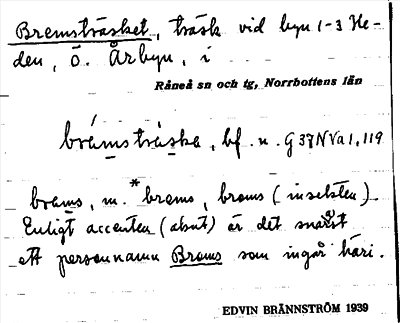 Bremsträsket, träsk vid byn 1-3 He-
den, ö. Årbyn, i
Råneå sn och tg, Norrbottens län
brámsträska, bf. n. G 37 N Va 1, 119
brems, m. *brams, broms (insekten).
Enligt accenten (akut) är det snarast
ett personnamn Broms som ingår häri.
EDVIN BRÄNNSTRÖM 1939